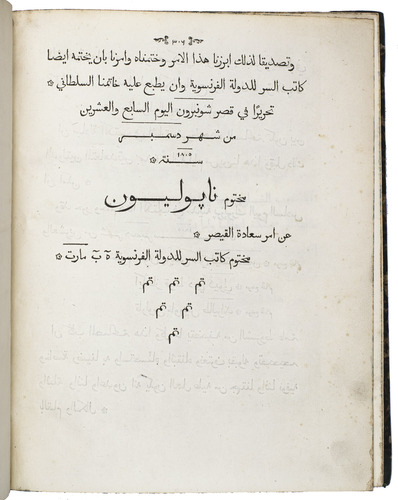 ٣٠٦
وتصديقا لذلك ابرزنا هذا الامر وختمناه وامرنا بان يختمه ايضا
كاتب السر للدولة الفرنسوية وان يطبع عليه خاتمنا السلطاني
تحريرًا في قصر شونبرون اليوم السابع والعشرين
من شهر دسمبر
سنة ١٨٠٥
مختوم ناپوليون
عن امر سعادة القيصر
مختوم كاتب السر للدولة الفرنسوية ه ب مارت
تم تم تم
تم تم
تم